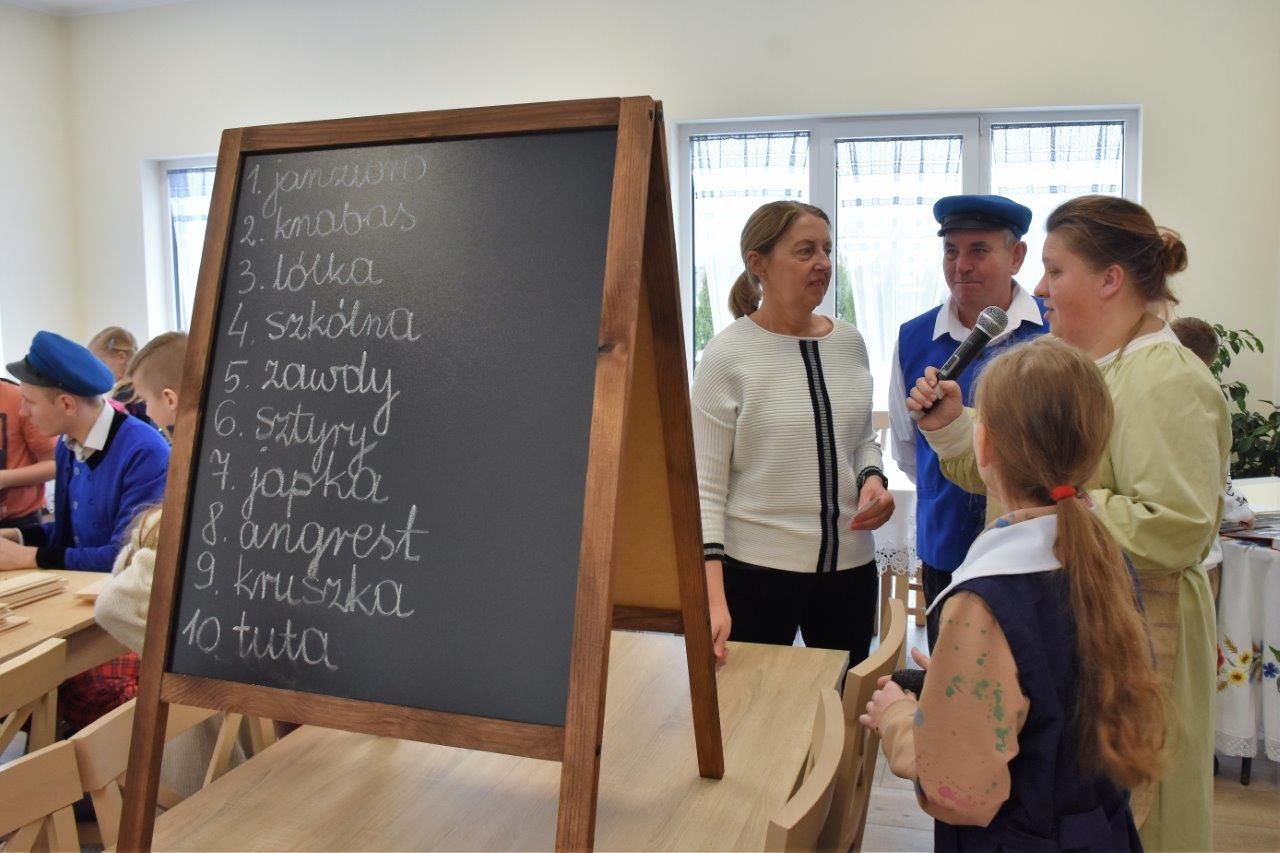 1. janziōn
2. knabas
3. lólka
4. szkólna
5. zawdy
6. sztyry
7. japka
8. angrest
9. kruszka
10 tuta